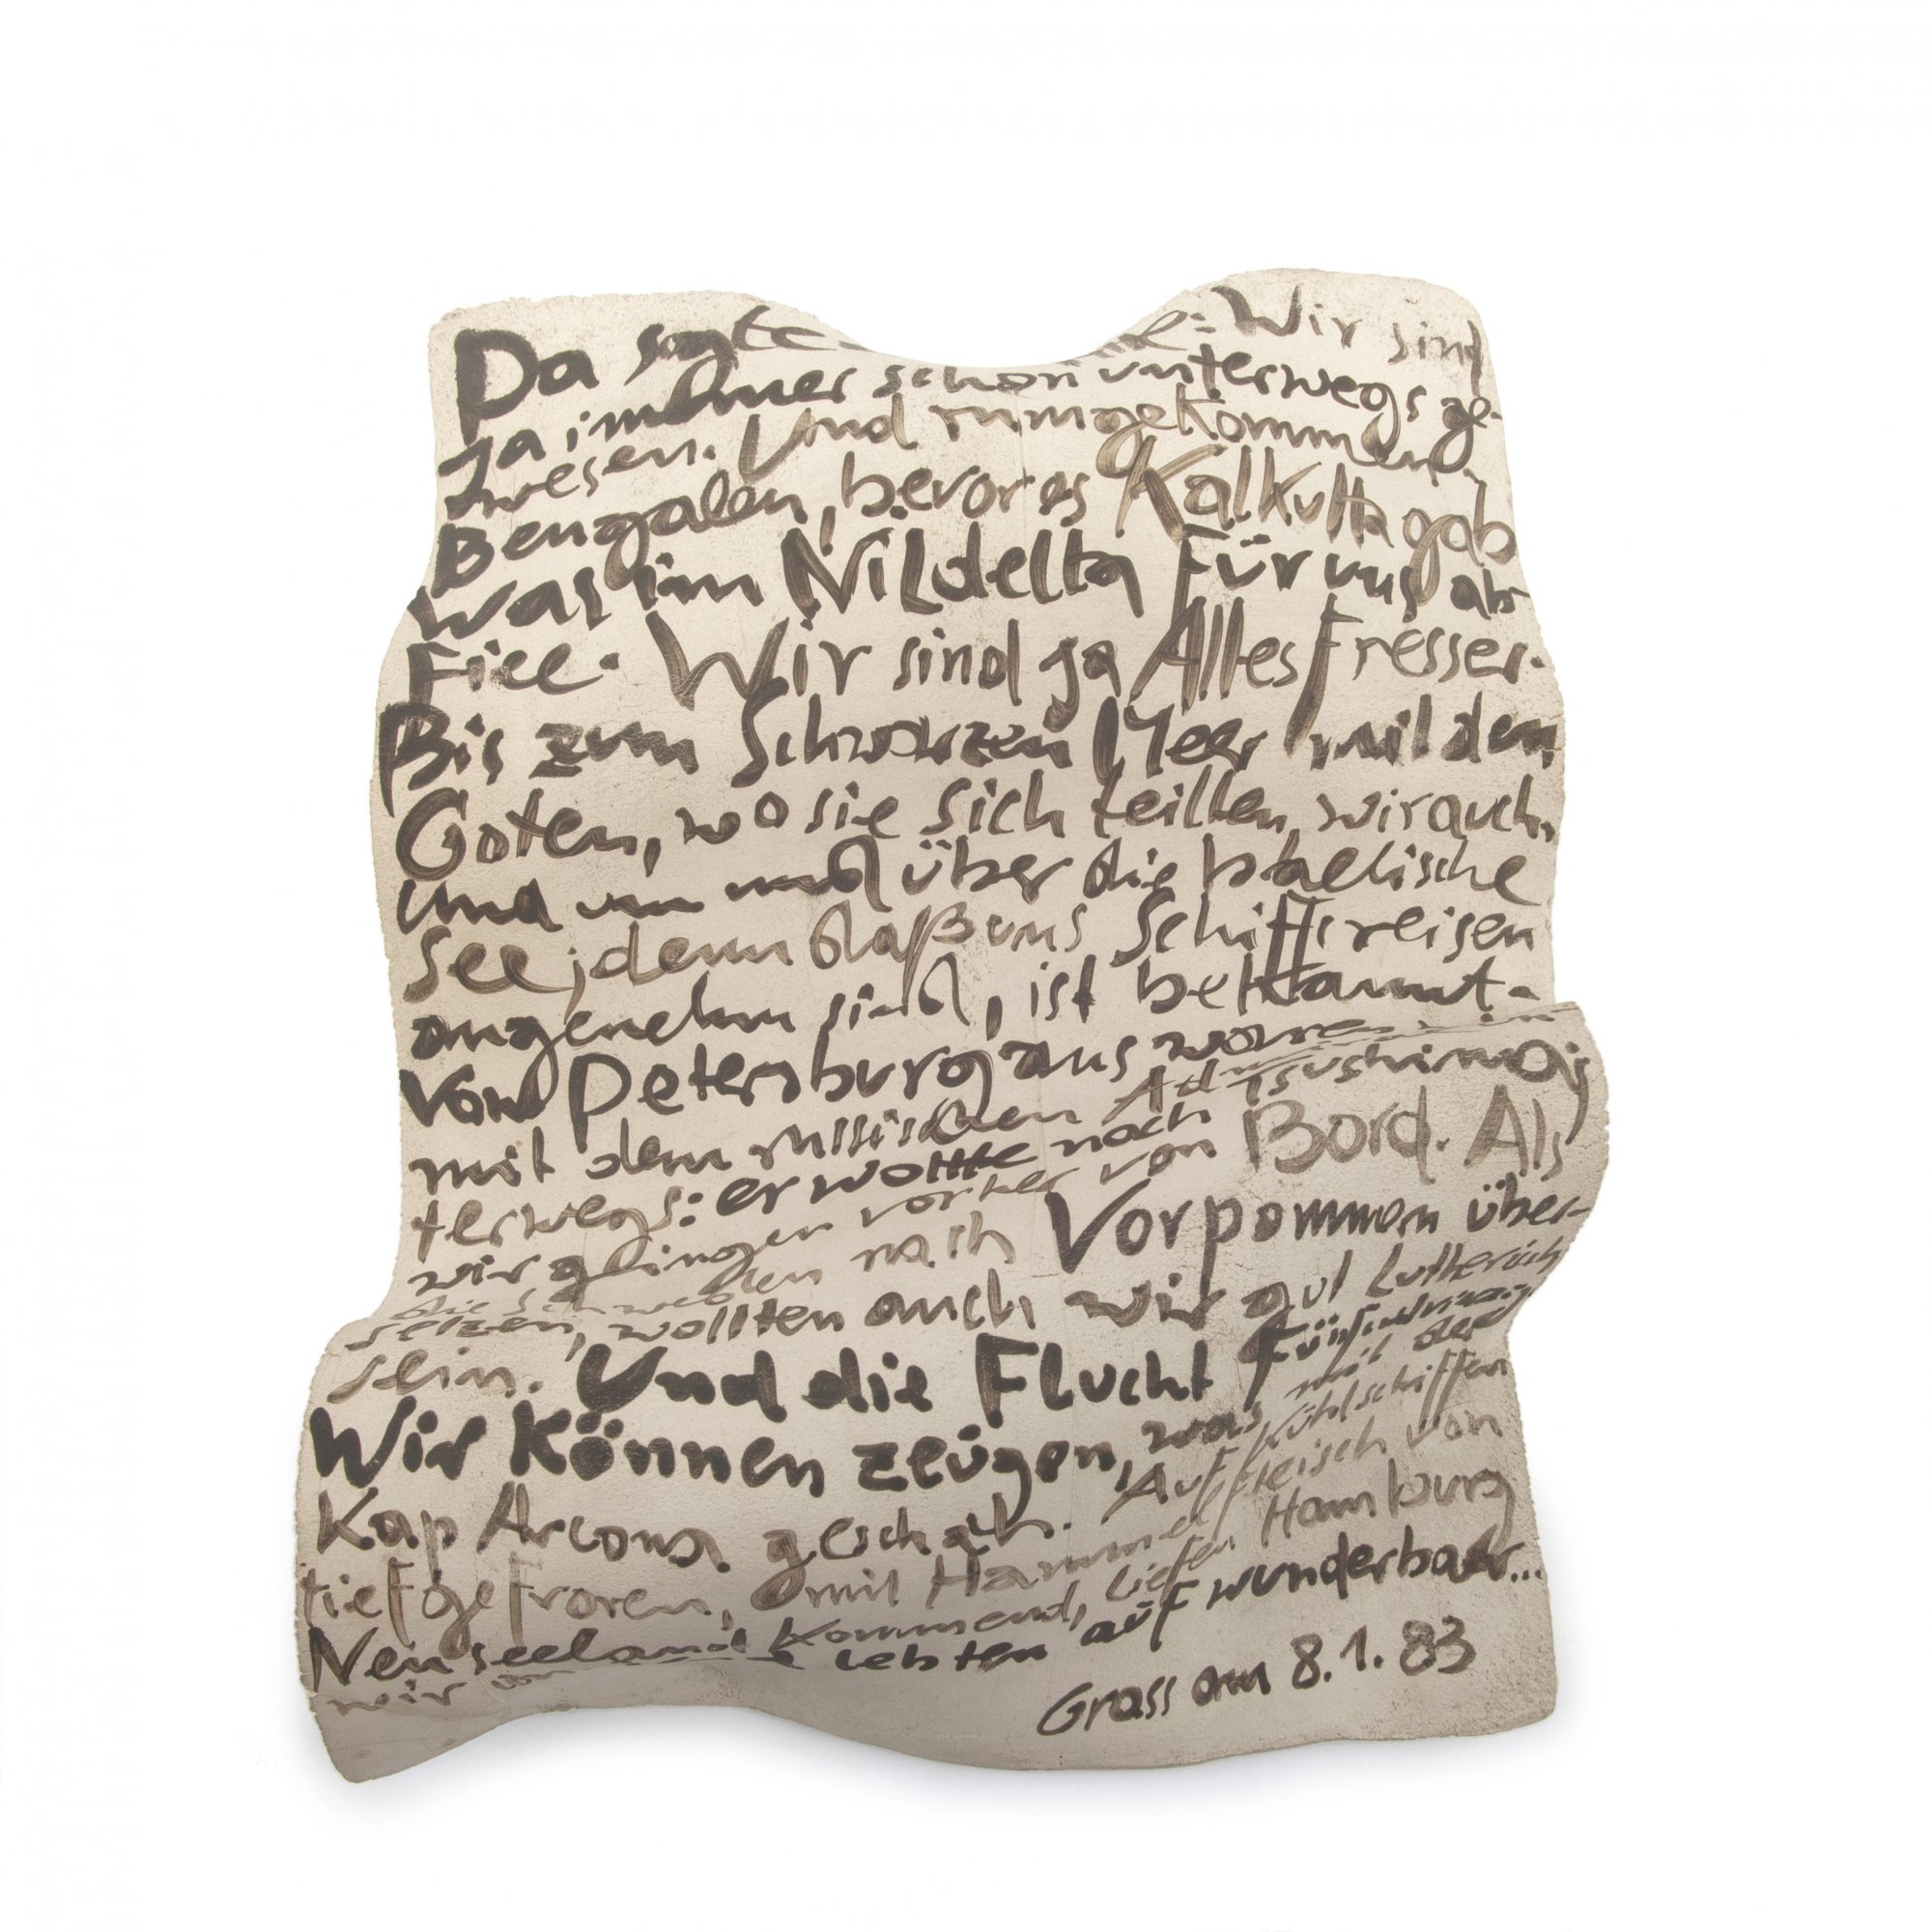 Da sagte : Wir sind
ja immer schon unterwegs ge-
wesen. Und rumgekommen.
Bengalen, bevor es Kalkutta gab
was im Nildelta für uns ab-
fiel. Wir sind ja Allesfresser.
Bis zum Schwarzen Meer mit den
Goten, wo sie sich teilten, wir auch.
Und über die baltische
See; denn daß uns Schiffsreisen
angenehm sind, ist bekannt.
Von Petersburg aus waren wir
mit dem russischen Ad un-
terwegs: er wollte noch Tsushima
wir gingen vorher von Bord. Als
die Schweden nach Vorpommern über-
setzen, wollten auch wir gut lutherisch
sein. Und die Flucht
Wir können zeugen, was mit der
Kap Arcona geschah. Auf Kühlschiffen
tiefgefroren, mit Hammelfleisch von
Neuseeland kommend, liefen Hamburg
wir lebten auf wunderbar...
Grass am 8.1.83